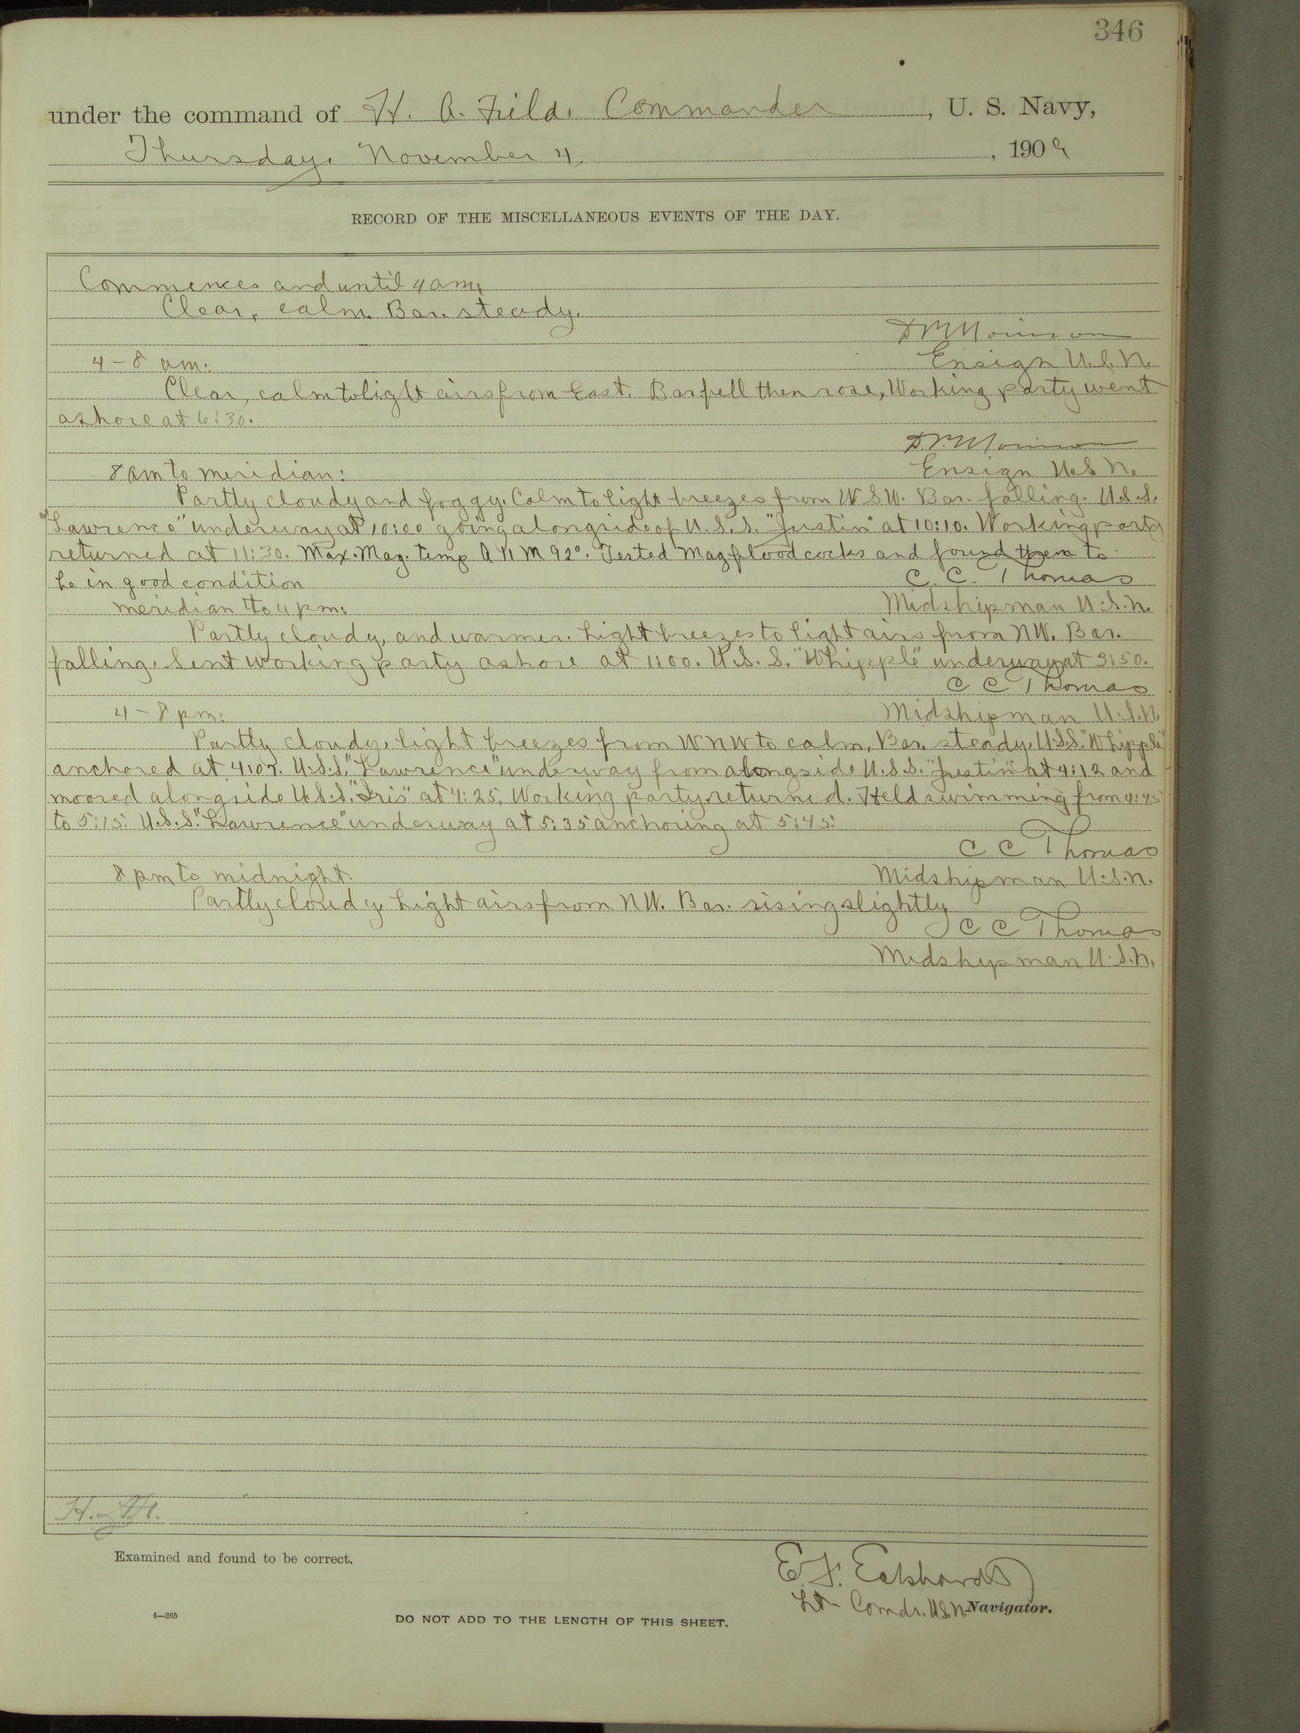 346
under the command of H. A. Field. Commander, U. S. Navy,
Thursday. November 4, 1909
RECORD OF THE MISCELLANEOUS EVENTS OF THE DAY.
Commences and until 4 am;
Clear, calm. Bar. steady.
4 - 8 am:
Ensign U.S.N.
Clear, calm to light airs from East. Bar fell then rose, Working party went
ashore at 6:30.
8 am to meridian:
Ensign U.S.N.
Partly cloudy and foggy. Calm to light breezes from WSW. Bar. falling. U.S.S.
"Lawrence" underway at 10:00 going alongside of U.S.S. "Justin" at 10:10. Working party
returned at 11:30. Max. Mag. temp A 11 M 92°. Tested Mag flood cocks and found them to
be in good condition
C. C. Thomas
meridian to 4 pm:
Midshipman U.S.N.
Partly cloudy, and warmer. Light breezes to light airs from NW. Bar.
falling. Sent working party ashore at 1:00. U.S.S. "Whipple" underway at 3:50.
C C Thomas
4 - 8 pm:
Midshipman U.S.N.
Partly cloudy, light breezes from WNW to calm, Bar. steady. U.S.S. "Whipple"
anchored at 4:07. U.S.S. "Lawrence" underway from alongside U.S.S. "Justin" at 4:12 and
moored alongside U.S.S. "Iris" at 4:25. Working party returned. Held swimming from 4:45
to 5:15. U.S.S. "Lawrence" underway at 5:35 anchoring at 5:45.
C C Thomas
8 pm to midnight.
Midshipman U.S.N.
Partly cloudy. Light airs from NW. Bar. rising slightly
C C Thomas
Midshipman U.S.N.
Examined and found to be correct.
E. F. Eckhardt
Lt. Comdr. U.S.N. Navigator.
4—265
DO NOT ADD TO THE LENGTH OF THIS SHEET.